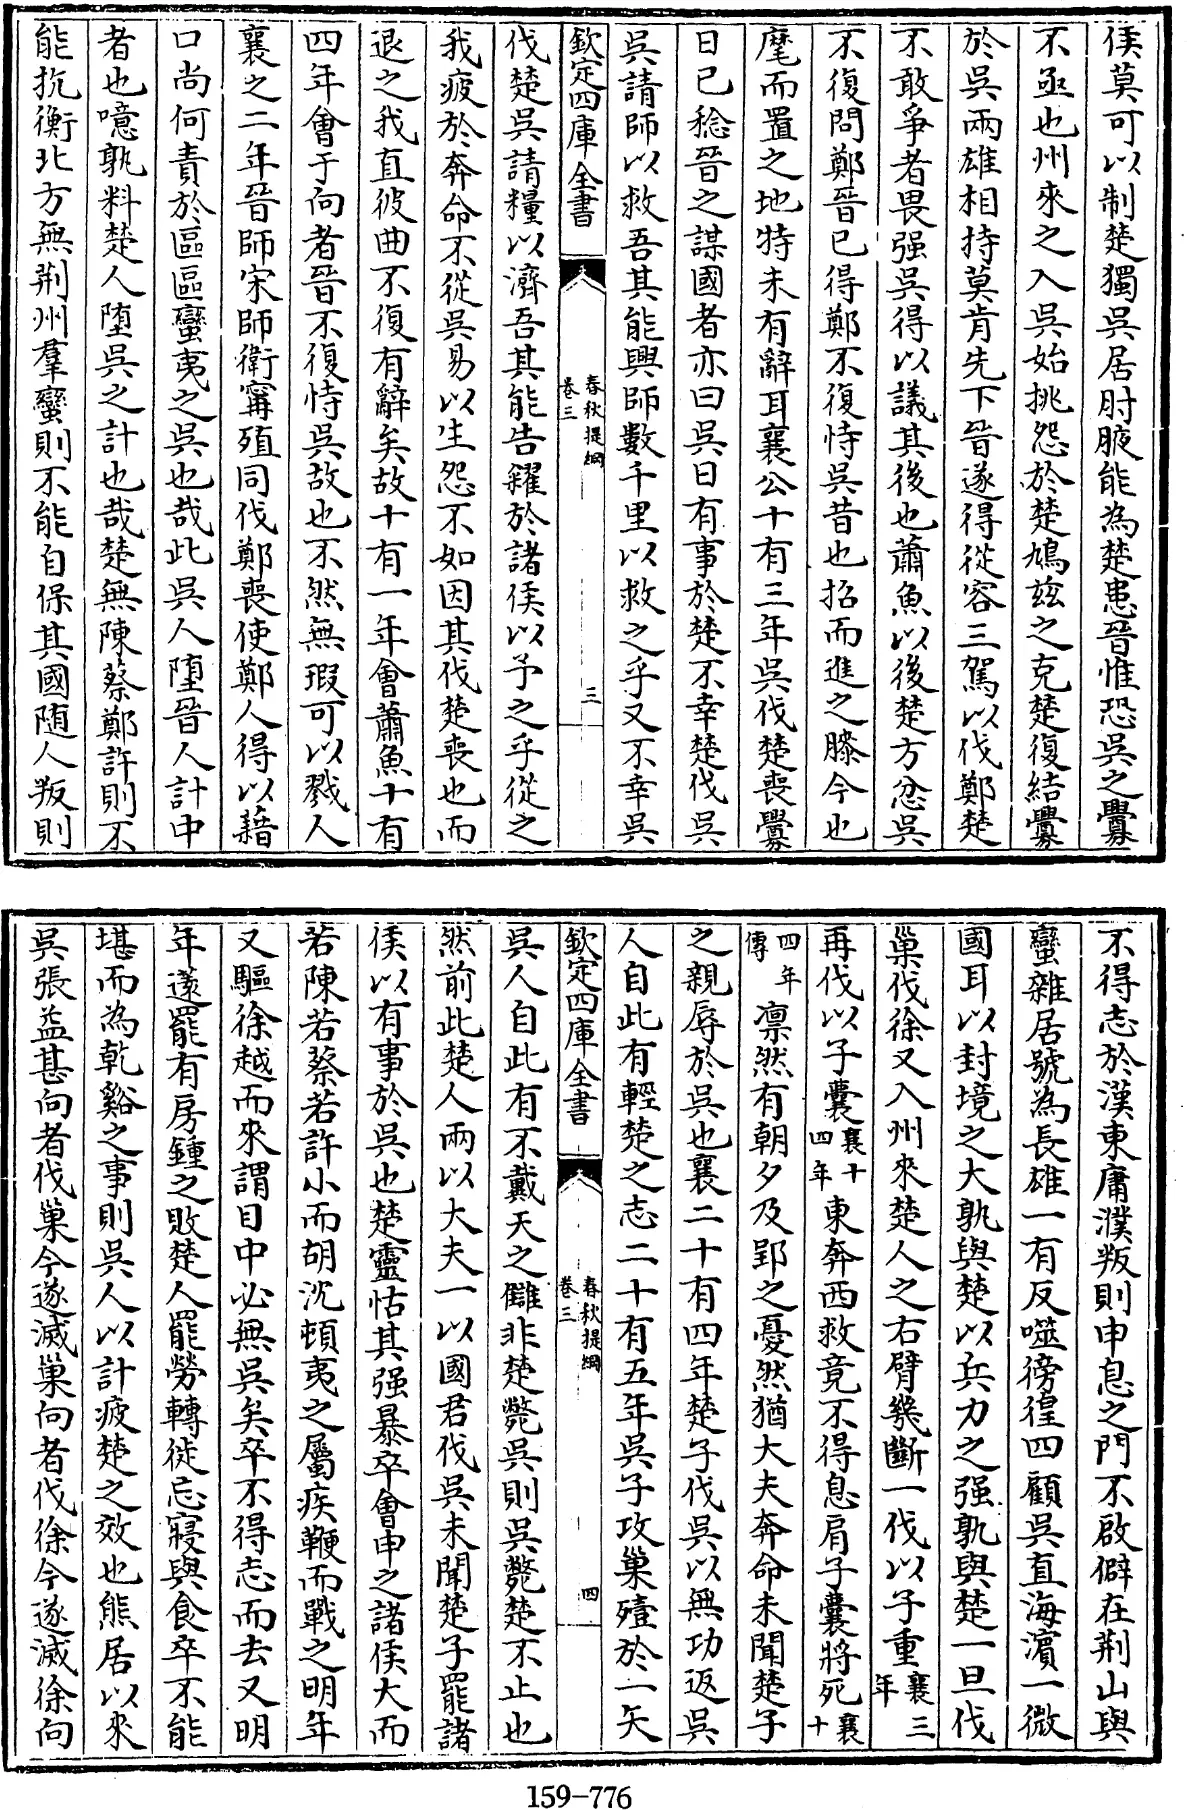 侯莫可以制楚獨吳居肘腋能為楚患晉惟恐吳之釁
不亟也州來之入吳始挑怨於楚鳩兹之克楚復結釁
於吳兩雄相持莫肯先下晉遂得從容三駕以伐鄭楚
不敢爭者畏强吳得以議其後也蕭魚以後楚方忿吳
不復問鄭晉已得鄭不復恃吳昔也招而進之膝今也
麾而置之地特未有辭耳襄公十有三年吳伐楚喪釁
日已稔晉之謀國者亦曰吳日有事於楚不幸楚伐吳
吳請師以救吾其能興師數千里以救之乎又不幸吳
欽定四庫全書
春秋提綱
卷三
三
伐楚吳請糧以濟吾其能告糴於諸侯以予之乎從之
我疲於奔命不從吳易以生怨不如因其伐楚喪也而
退之我直彼曲不復有辭矣故十有一年會蕭魚十有
四年會于向者晉不復恃吳故也不然無瑕可以戮人
襄之二年晉師宋師衛甯殖同伐鄭喪使鄭人得以藉
口尚何責於區區蠻夷之吳也哉此吳人墮晉人計中
者也噫孰料楚人墮吳之計也哉楚無陳蔡鄭許則不
能抗衡北方無荆州羣蠻則不能自保其國随人叛則
不得志於漢東庸濮叛則申息之門不啟僻在荆山與
蠻雜居號為長雄一有反噬徬徨四顧吳直海濵一微
國耳以封境之大孰與楚以兵力之强孰與楚一旦伐
巢伐徐又入州來楚人之右臂幾斷一伐以子重襄三年
再伐以子囊襄十四年東奔西救竟不得息肩子囊將死襄十
四年傳凛然有朝夕及郢之憂然猶大夫奔命未聞楚子
之親辱於吳也襄二十有四年楚子伐吳以無功返吳
人自此有輕楚之志二十有五年吳子攻巢殪於一矢
欽定四庫全書
春秋提綱
卷三
四
吳人自此有不戴天之讎非楚斃吳則吳斃楚不止也
然前此楚人兩以大夫一以國君伐吳未聞楚子罷諸
侯以有事於吳也楚靈怙其强暴卒會申之諸侯大而
若陳若蔡若許小而胡沈頓夷之屬疾鞭而戰之明年
又驅徐越而來謂目中必無吳矣卒不得志而去又明
年薳罷有房鍾之敗楚人罷勞轉徙忘寢與食卒不能
堪而為乾谿之事則吳人以計疲楚之效也熊居以來
吳張益甚向者伐巢今遂滅巢向者伐徐今遂滅徐向
159-776